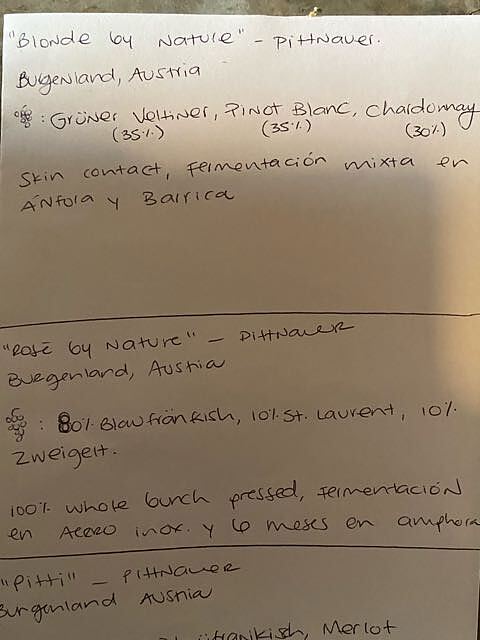 "Blonde by Nature" - Pittnauer.
Burgenland, Austria
: Grüner Veltliner, Pinot Blanc, Chardonnay
(35%) (35%) (30%)
Skin contact, Fermentación mixta en
Ánfora y Barrica
"Rosé by Nature" - Pittnauer
Burgenland, Austria
: 80% Blaufränkish, 10% St. Laurent, 10%
Zweigelt.
100% whole bunch pressed, Fermentación
en Acero inox. y 6 meses en amphora
"Pitti" - Pittnauer
Burgenland Austria
Merlot